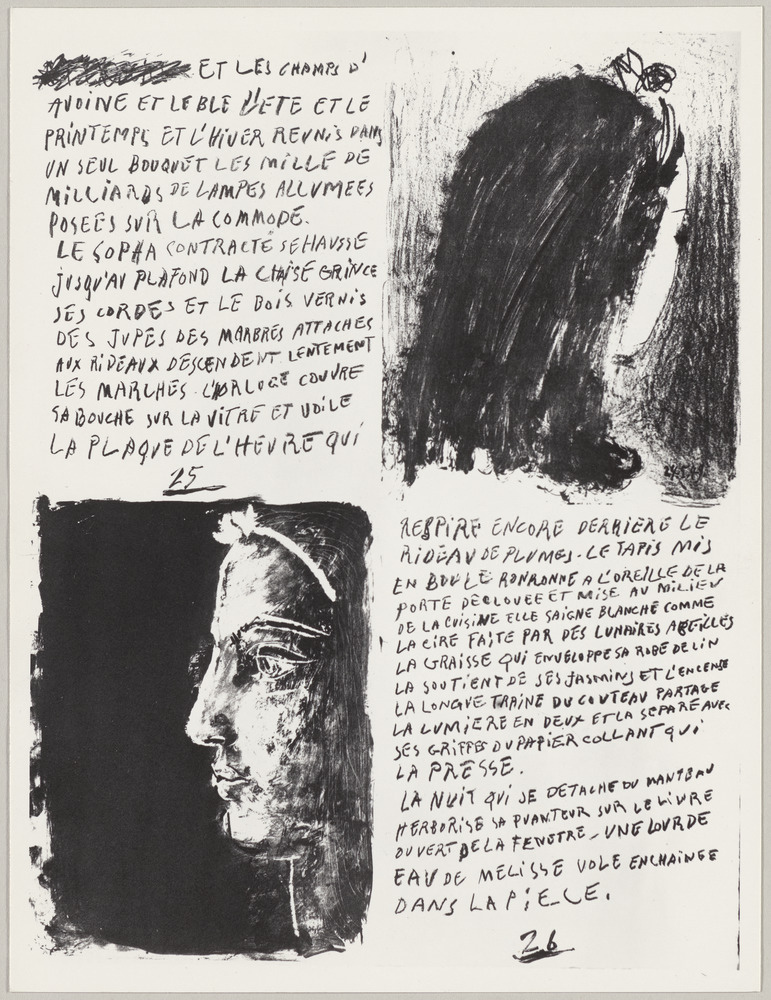 ET LES CHAMPS D'
AVOINE ET LE BLE L'ETE ET LE
PRINTEMPS ET L'HIVER REUNIS DANS
UN SEUL BOUQUET LES MILLE DE
MILLIARDS DE LAMPES ALLUMEES
POSEES SUR LA COMMODE.
LE SOPHA CONTRACTE SE HAUSSE
JUSQU'AU PLAFOND LA CHAISE GRINCE
SES CORDES ET LE BOIS VERNIS
DES JUPES DES MARBRES ATTACHES
AUX RIDEAUX DESCENDENT LENTEMENT
LES MARCHES. L'ORLOGE COUVRE
SA BOUCHE SUR LA VITRE ET VOILE
LA PLAQUE DE L'HEURE QUI
25
RESPIRE ENCORE DERRIERE LE
RIDEAU DE PLUMES. LE TAPIS MIS
EN BOULE RONRONNE A L'OREILLE DE LA
PORTE DECLOUEE ET MISE AU MILIEU
DE LA CUISINE ELLE SAIGNE BLANCHE COMME
LA CIRE FAITE PAR DES LUNAIRES ABEILLES
LA GRAISSE QUI ENVELOPPE SA ROBE DE LIN
LA SOUTIENT DE SES JASMINS ET L'ENCENSE
LA LONGUE TRAINE DU COUTEAU PARTAGE
LA LUMIERE EN DEUX ET LA SEPARE AVEC
SES GRIFFES DU PAPIER COLLANT QUI
LA PRESSE.
LA NUIT QUI SE DETACHE DU MANTEAU
HERBORISE SA PUANTEUR SUR LE LIVRE
OUVERT DE LA FENETRE - UNE LOURDE
EAU DE MELISSE VOLE ENCHAINEE
DANS LA PIECE.
26